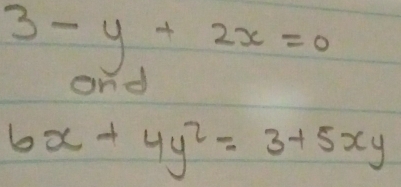 3 - y + 2x = 0
and
6x + 4y² = 3 + 5xy